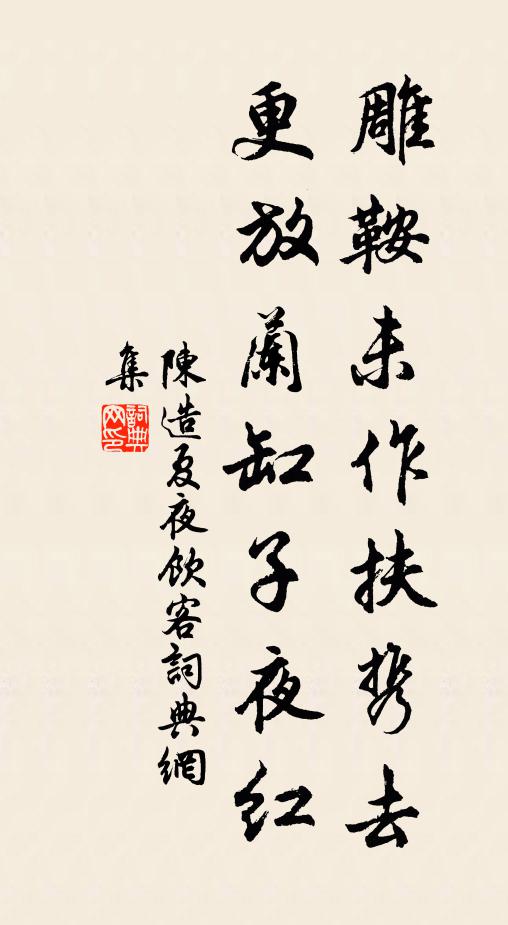 雕鞍未作扶携去
更放蘭缸子夜紅
陳造夏夜飲客詞典網
集
詞典
网印